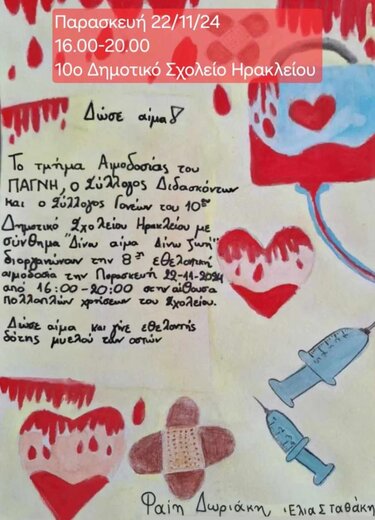 Παρασκευή 22/11/24
16.00-20.00
10ο Δημοτικό Σχολείο Ηρακλείου
Δώσε αίμα!
Το τμήμα Αιμοδοσίας του
ΠΑΓΝΗ, ο Σύλλογος Διδασκόντων
και ο Σύλλογος Γονέων του 10ου
Δημοτικού Σχολείου Ηρακλείου με
σύνθημα "Δίνω αίμα Δίνω ζωή"
διοργανώνουν την 8η εθελοντική
αιμοδοσία την Παρασκευή 22-11-2024
από 16:00-20:00 στην αίθουσα
πολλαπλών χρήσεων του Σχολείου.
Δώσε αίμα και γίνε εθελοντής
δότης μυελού των οστών
Φαίη Δωριάκη, Έλια Σταθάκη